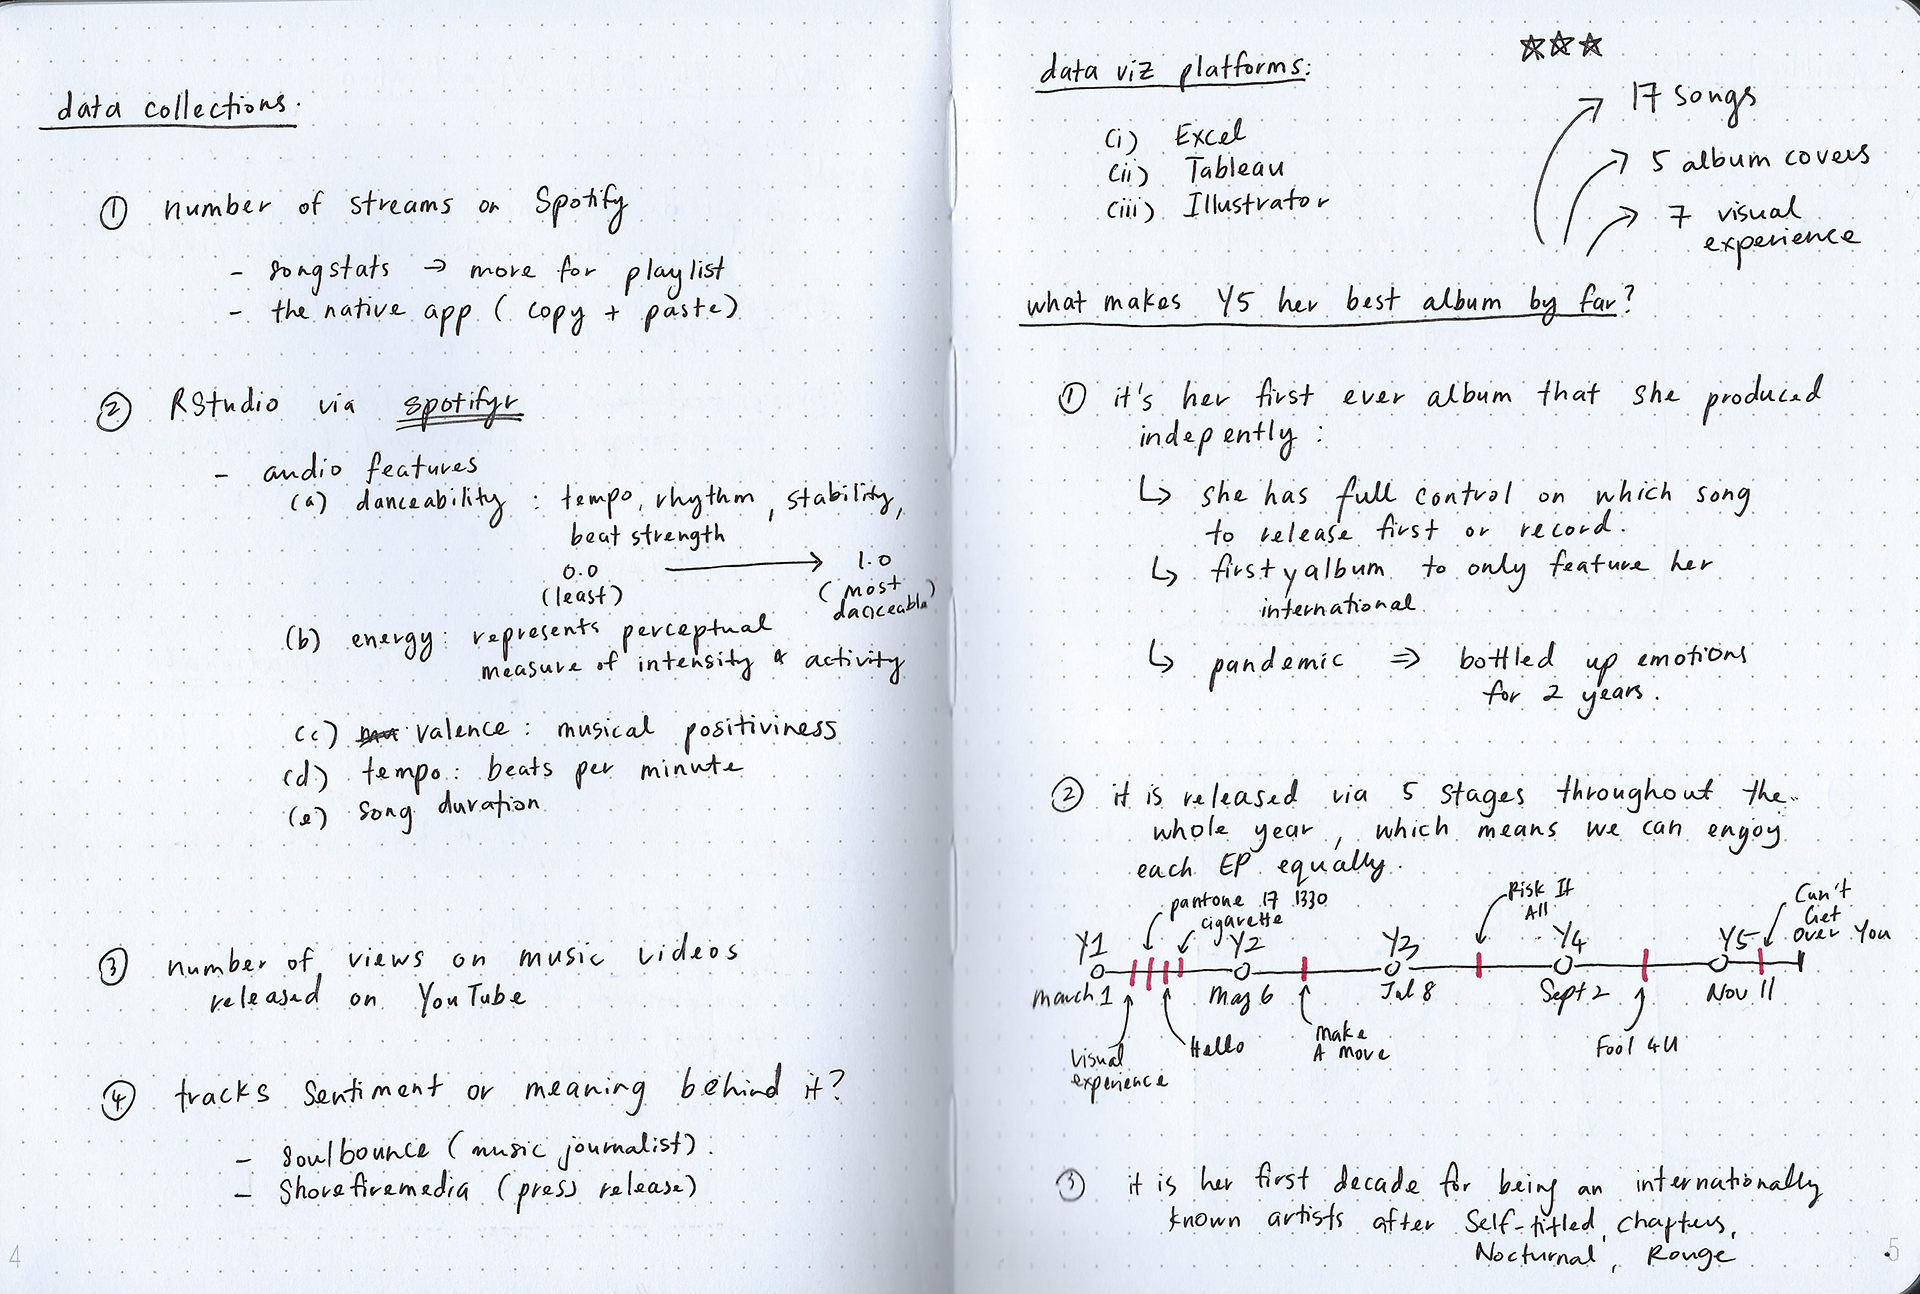 data collections.
① number of streams on Spotify
- songstats → more for playlist
- the native app ( copy + paste)
② RStudio via spotifyr
- audio features
(a) danceability : tempo, rhythm, stability,
beat strength
0.0 → 1.0
(least) (most
danceable)
(b) energy: represents perceptual
measure of intensity & activity
(c) valence : musical positiviness
(d) tempo : beats per minute
(e) song duration
③ number of views on music videos
released on YouTube
④ tracks sentiment or meaning behind it?
- Soulbounce (music journalist).
- Shorefiremedia (press release)
4
data viz platforms:
(i) Excel
(ii) Tableau
(iii) Illustrator
17 songs
5 album covers
7 visual
experience
what makes Y5 her best album by far?
① it's her first ever album that she produced
indepently :
↳ she has full control on which song
to release first or record.
↳ first y album to only feature her
international
↳ pandemic ⇒ bottled up emotions
for 2 years.
② it is released via 5 stages throughout the
whole year, which means we can engoy
each EP equally.
pantone 17 1330
cigarette
Risk It
All
Can't
Get
Over You
Y1 Y2 Y3 Y4 Y5
march 1 May 6 Jul 8 Sept 2 Nov 11
visual
experience
Hello
make
A move
Fool 4U
③ it is her first decade for being an internationally
known artists after Self-titled, Chapters,
Nocturnal, Rouge
5